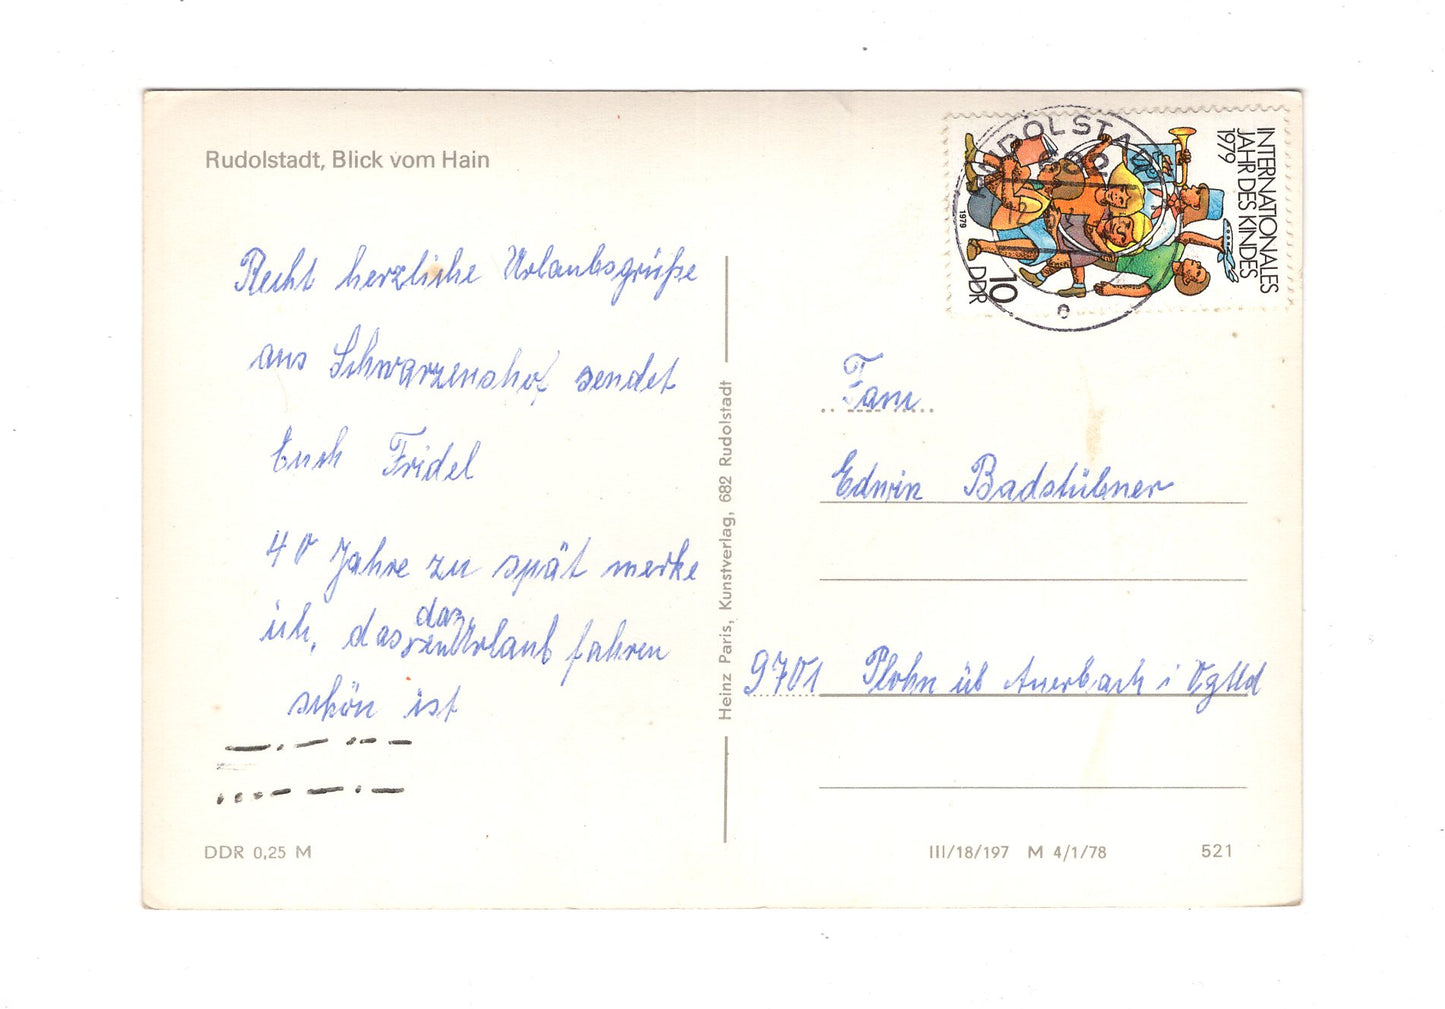 Rudolstadt, Blick vom Hain
Recht herzliche Urlaubsgrüße
aus Schwarzenshof sendet
Euch Fridel
40 Jahre zu spät merke
ich, das
daz
Urlaub fahren
schön ist
DDR 0,25 M
Heinz Paris, Kunstverlag, 682 Rudolstadt
INTERNATIONALES
JAHR DES KINDES
1979
10
DDR
1979
RUDOLSTADT
682
Fam
Edwin Badstübner
9701 Plohn üb Auerbach i Vgtld
III/18/197 M 4/1/78
521